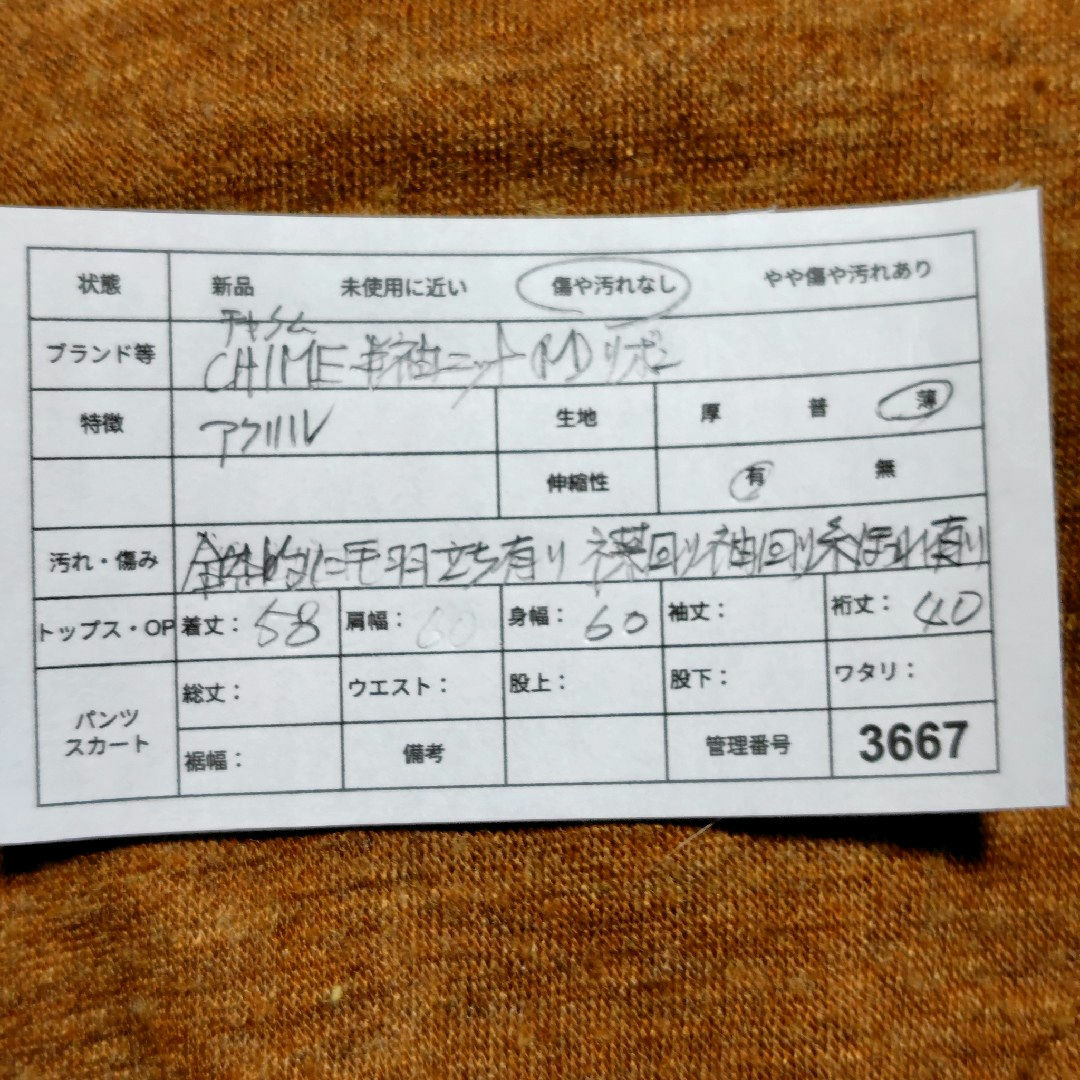 状態 新品 未使用に近い 傷や汚れなし やや傷や汚れあり
チャイム
ブランド等 CHIME 半袖ニット (M) リボン
特徴 アクリル 生地 厚 普 薄
伸縮性 有 無
汚れ・傷み 全体的に毛羽立ち有り 襟回り袖回り糸ほつれ有り
トップス・OP 着丈： 58 肩幅： 60 身幅： 60 袖丈： 裄丈： 40
パンツ
スカート
総丈： ウエスト： 股上： 股下： ワタリ：
裾幅： 備考 管理番号 3667